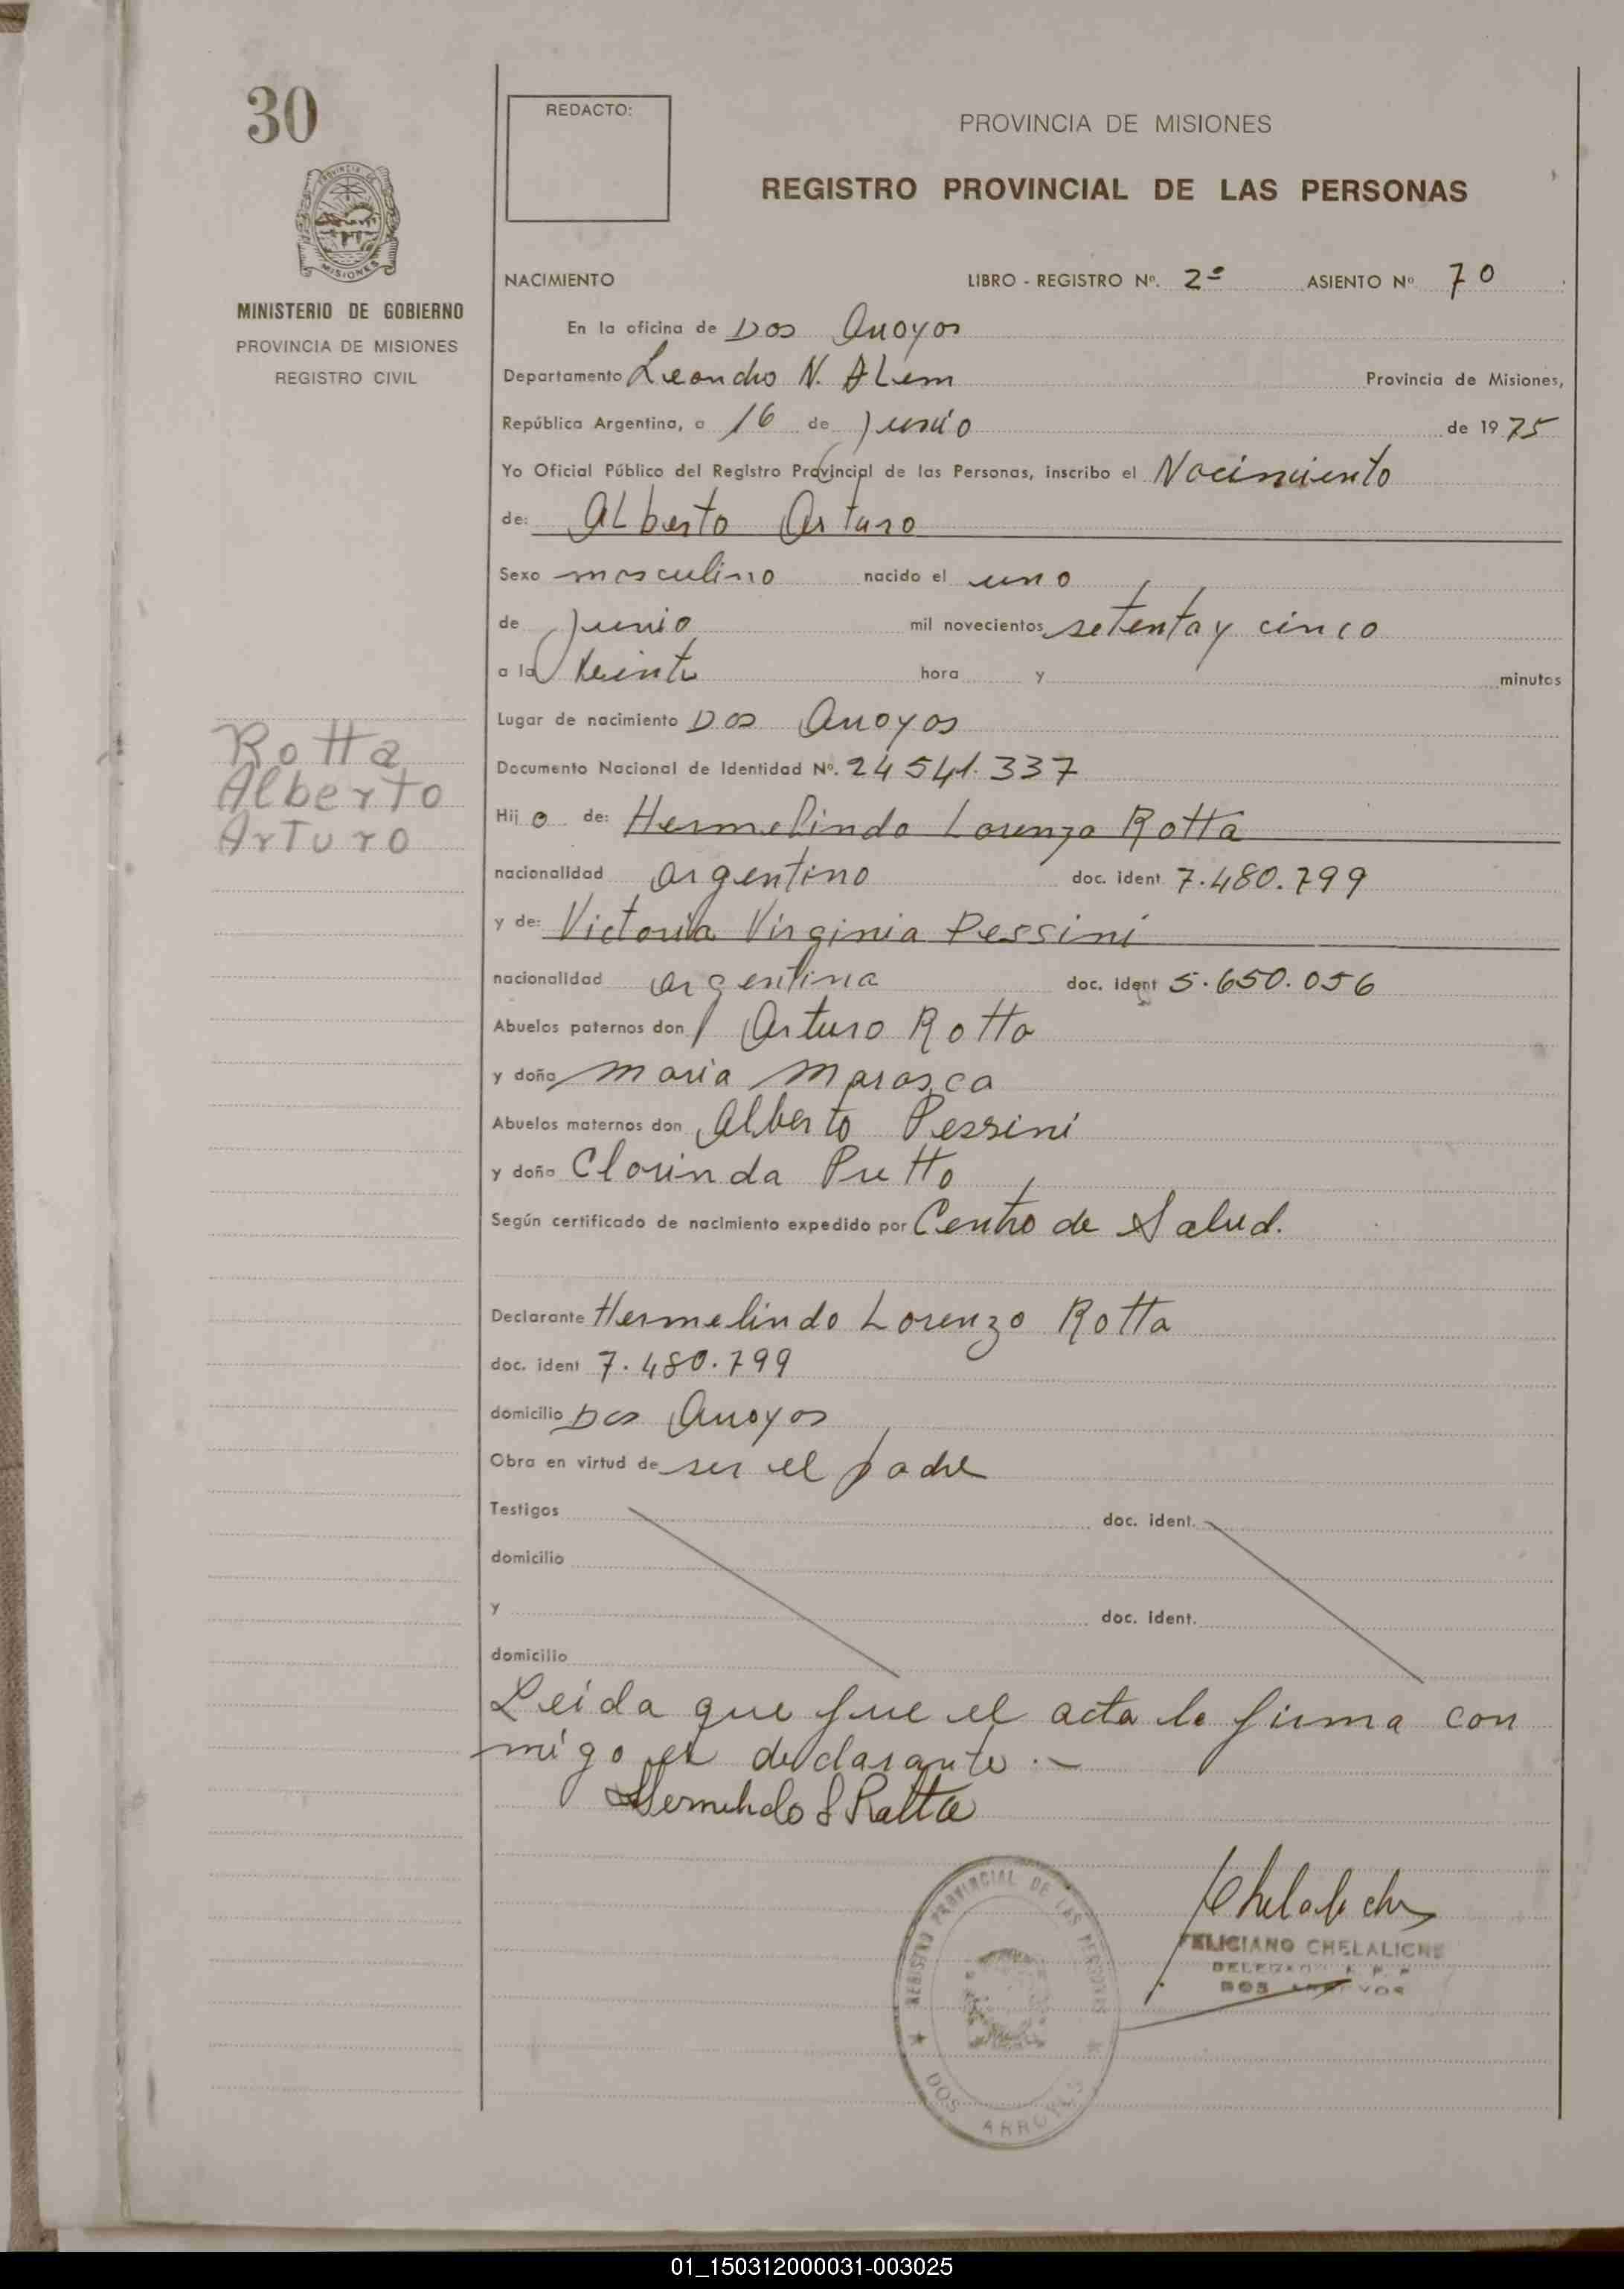 30
REDACTO:
PROVINCIA DE MISIONES
REGISTRO PROVINCIAL DE LAS PERSONAS
PROVINCIA DE
MISIONES
MINISTERIO DE GOBIERNO
PROVINCIA DE MISIONES
REGISTRO CIVIL
NACIMIENTO LIBRO - REGISTRO Nº. 2º ASIENTO Nº 70
En la oficina de Dos Arroyos
Departamento Leandro N. ALem Provincia de Misiones,
República Argentina, a 16 de Junio de 1975
Yo Oficial Público del Registro Provincial de las Personas, inscribo el Nacimiento
de: ALberto Arturo
Sexo masculino nacido el uno
de Junio mil novecientos setenta y cinco
a la Veinte hora y minutos
Lugar de nacimiento Dos Arroyos
Rotta
Alberto
Arturo
Documento Nacional de Identidad Nº. 24 541.337
Hij o de: Hermelindo Lorenzo Rotta
nacionalidad argentino doc. ident 7.480.799
y de: Victoria Virginia Pessini
nacionalidad argentina doc. ident 5.650.056
Abuelos paternos don Arturo Rotta
y doña Maria Marasca
Abuelos maternos don Alberto Pessini
y doña Clorinda Pretto
Según certificado de nacimiento expedido por Centro de Salud.
Declarante Hermelindo Lorenzo Rotta
doc. ident 7.480.799
domicilio Dos Arroyos
Obra en virtud de ser el padre
Testigos doc. ident.
domicilio
y doc. ident.
domicilio
Leida que fue el acta la firma con
migo el declarante.-
Hermelindo L Rotta
Chelaliche
FELICIANO CHELALICHE
DELEGADO R. P. P.
DOS ARROYOS
REGISTRO PROVINCIAL DE LAS PERSONAS
DOS ARROYOS
01_150312000031-003025